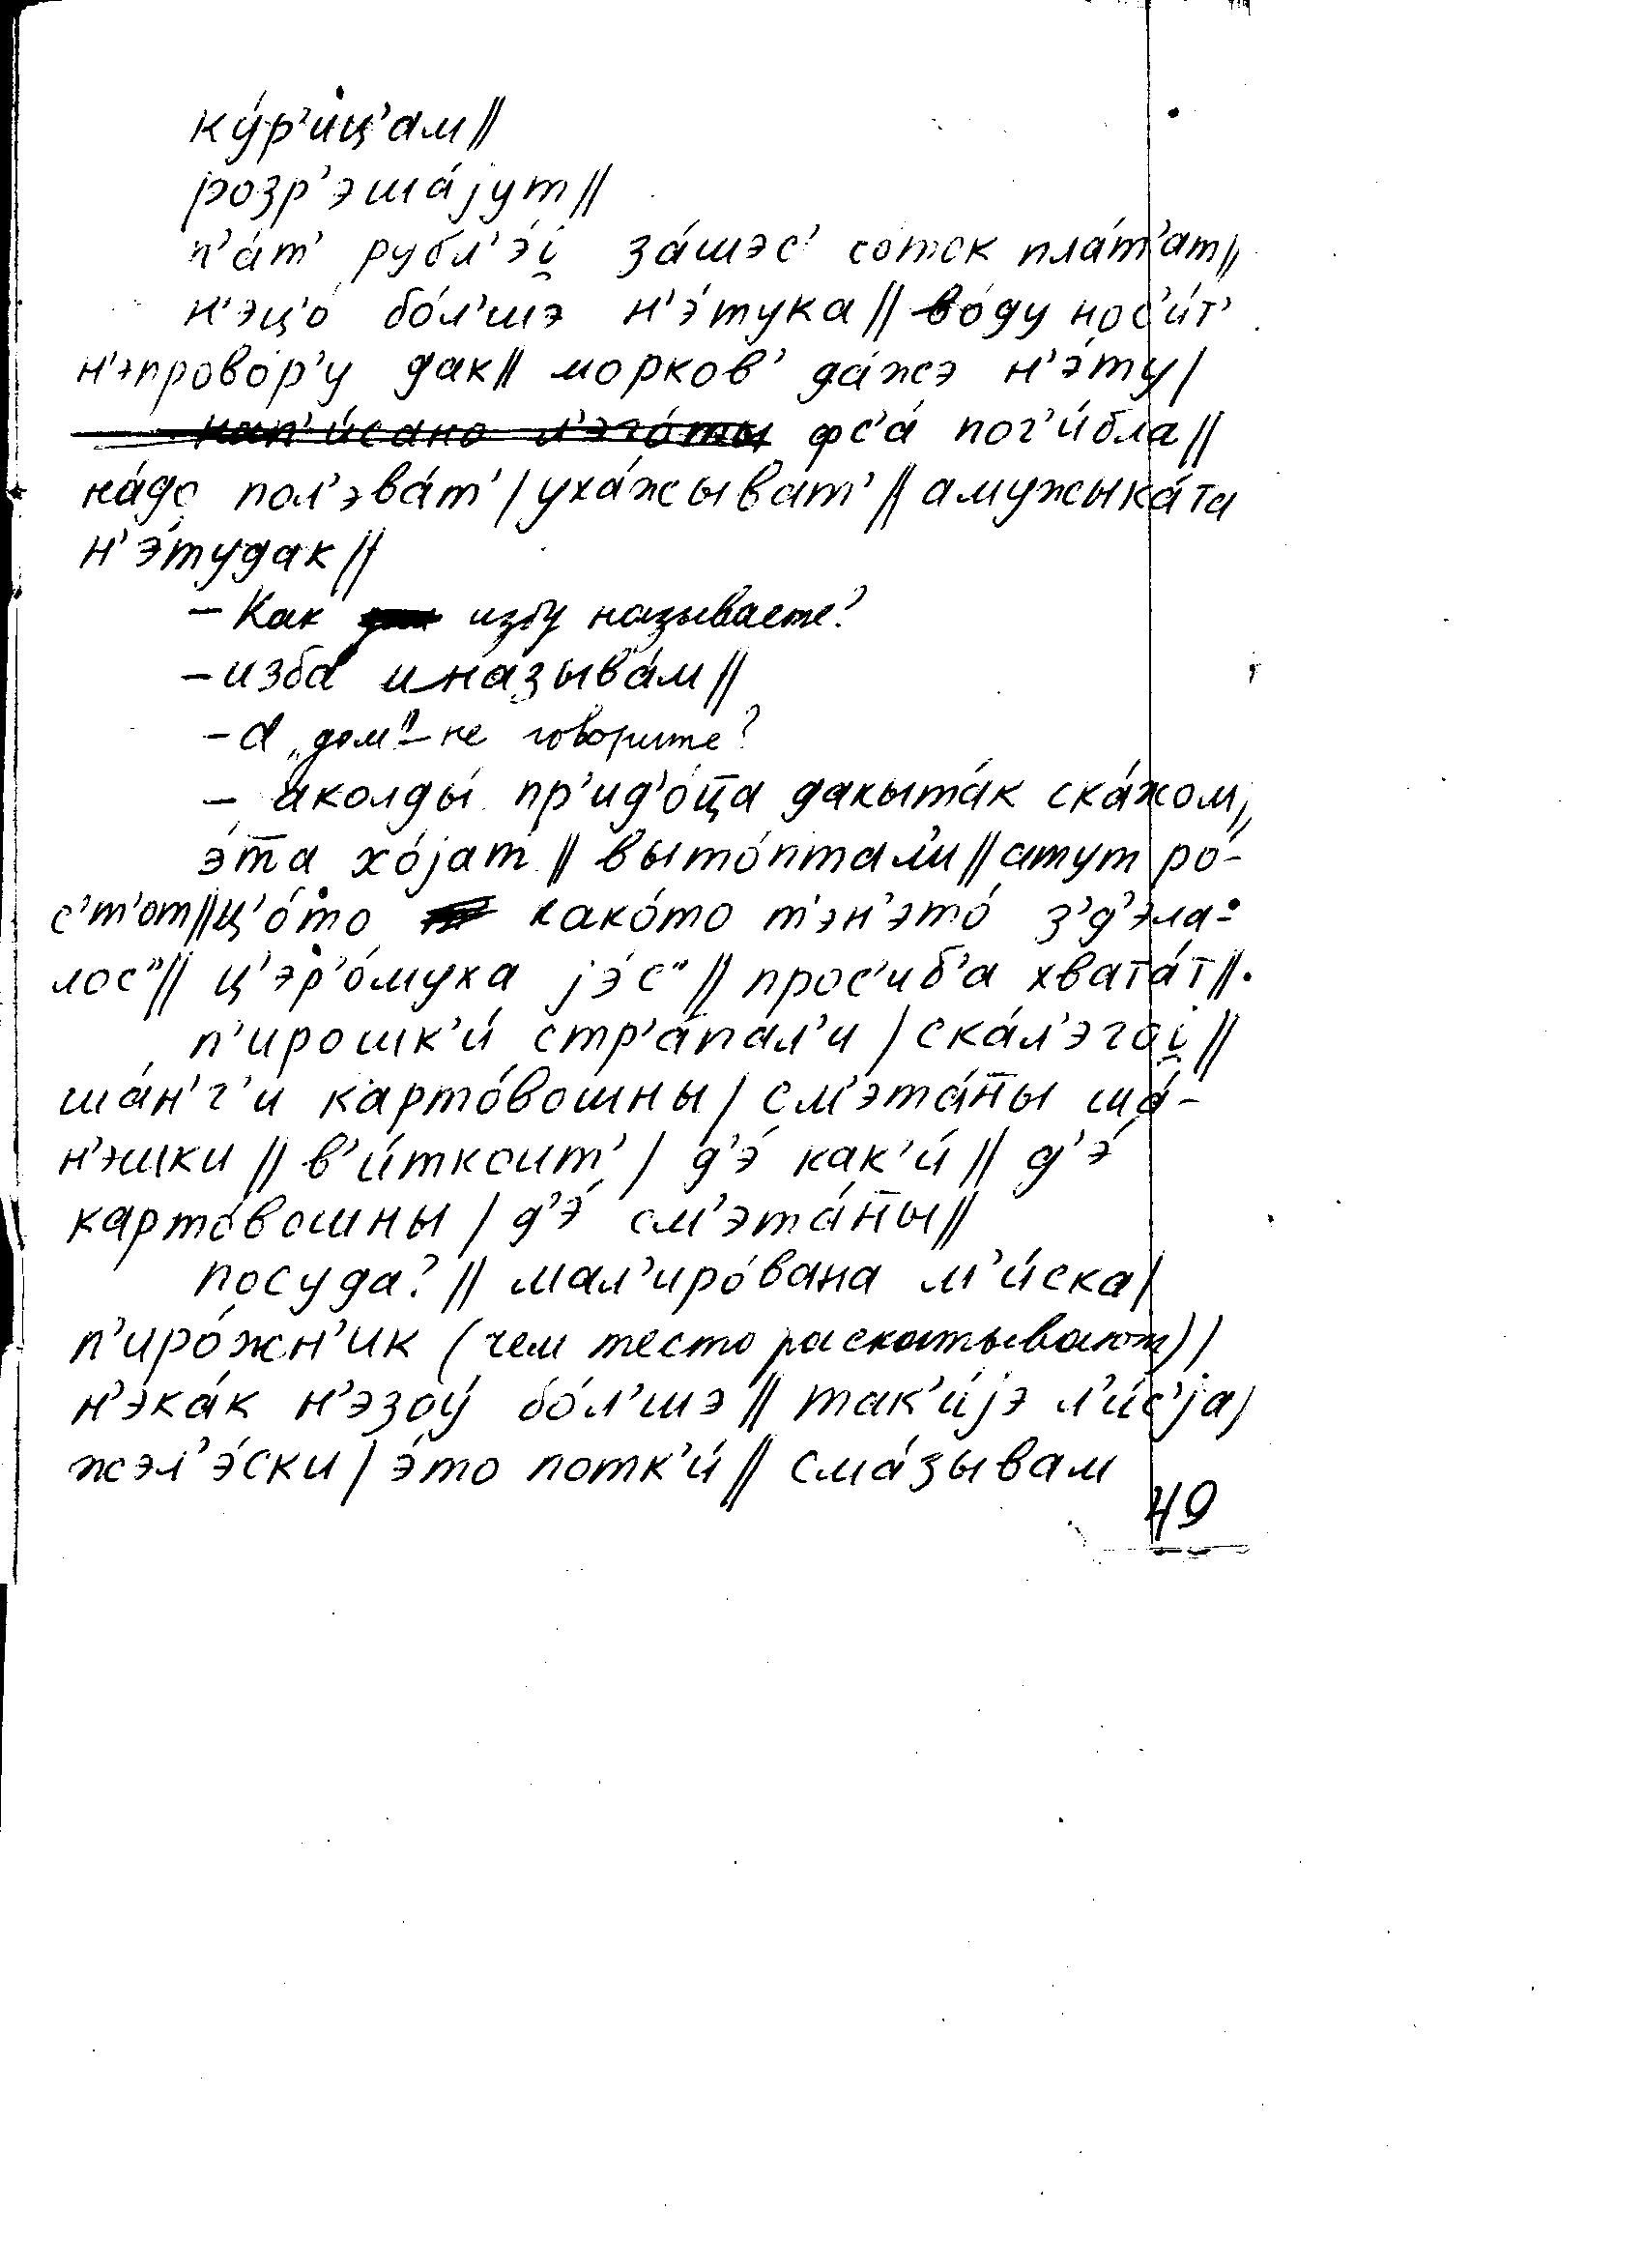 ку́р'иц'ам//
розр'эша́jут//
п'а́т' рубл'э́i̯ за́шэс' со́ток пла́т'ат//
н'эц'о́ бо́л'шэ н'э́тука// во́ду нос'и́т'
н'эпрово́р'у дак// морков' да́жэ н'э́ту/
нап'и́сано л'эго́ты фс'а́ пог'и́бла//
на́до пол'эва́т'/ уха́жыват'// амужыка́та
н'э́тудак//
– Как избу называете?
– изба́ иназыва́м//
– а „дом"– не говорите?
– аколды́ пр'ид'о́ц̄а дакыта́к ска́жом//
э́т̄а хо́jат// выто́птал'и// атут ро́-
с'т'от//ц'о́то како́то т'эн'это́ з'д'э́ла-
лос"// ц'эр'о́муха jэ́с"// прос'иб'а хвата́т//.
п'ирошк'и́ стр'а́пал'и/ ска́л'эгоi̯//
ша́н'г'и карто́вошны/ см'эта́н̄ы ша́-
н'эшки// в'и́ткоит'/ д'э́ как'и́// д'э́
карто́вошны/ д'э́ см'эта́н̄ы//
посуда?// мал'иро́вана м'и́ска/
п'иро́жн'ик (чем тесто раскатывают)/
н'эка́к н'эзоу́ бо́л'шэ// так'и́jэ л'и́с'jа/
жэл'э́ски/ э́то потк'и́// сма́зывам
49